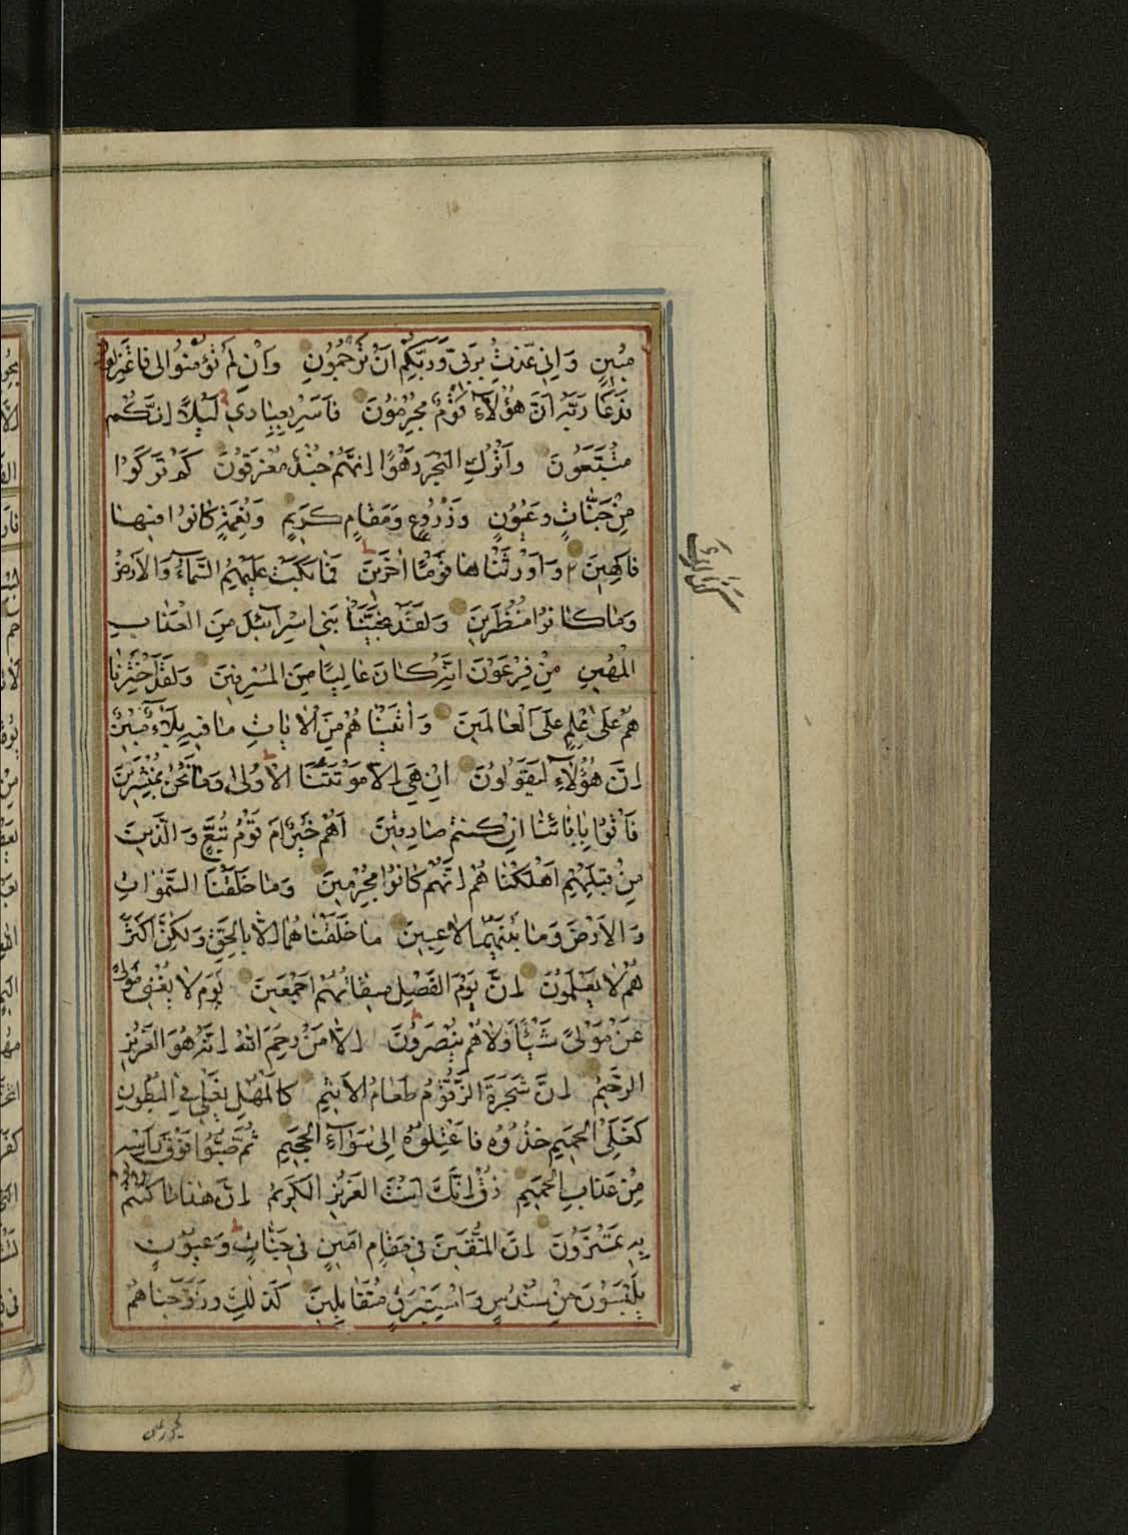 مُبينٍ وَاِنّي عُذتُ بِرَبّي وَرَبِّكُم اَنْ تَرْجُمُونِ وَاِنْ لَمْ تُؤمِنُوا لي فَاعْتَزِلُونِ
فَدَعَا رَبَّهُ اَنَّ هٰؤُلَآءِ قَوْمٌ مُجْرِمُونَ فَاَسْرِ بِعِبَادي لَيْلًا اِنَّكُمْ
مُتَّبَعُونَ وَاتْرُكِ البَحْرَ رَهْوًا اِنَّهُمْ جُنْدٌ مُغْرَقُونَ كَمْ تَرَكُوا
مِنْ جَنَّاتٍ وَعُيُونٍ وَزُرُوعٍ وَمَقَامٍ كَرِيمٍ وَنِعْمَةٍ كَانُوا فيهَا
فَاكِهينَ وَاَوْرَثْنَاهَا قَوْمًا اٰخَرينَ فَمَا بَكَتْ عَلَيْهِمُ السَّمَآءُ وَالاَرْضُ
وَمَا كَانُوا مُنْظَرينَ وَلَقَدْ نَجَّيْنَا بَني اِسْرآئيلَ مِنَ الْعَذَابِ
الْمُهينِ مِنْ فِرْعَوْنَ اِنَّهُ كَانَ عَالِيًا مِنَ الْمُسْرِفينَ وَلَقَدِ اخْتَرْنَا
هُمْ عَلٰى عِلْمٍ عَلَى الْعَالَمينَ وَاٰتَيْنَاهُمْ مِنَ الْاٰيَاتِ مَا فيهِ بَلَآءٌ مُبينٌ
اِنَّ هٰؤُلَآءِ لَيَقُولُونَ اِنْ هِيَ اِلَّا مَوْتَتُنَا الْاُولٰى وَمَا نَحْنُ بِمُنْشَرينَ
فَاْتُوا بِاٰبَائِنَا اِنْ كُنْتُمْ صَادِقينَ اَهُمْ خَيْرٌ اَمْ قَوْمُ تُبَّعٍ وَالَّذينَ
مِنْ قَبْلِهِمْ اَهْلَكْنَاهُمْ اِنَّهُمْ كَانُوا مُجْرِمينَ وَمَا خَلَقْنَا السَّمٰوَاتِ
وَالْاَرْضَ وَمَا بَيْنَهُمَا لَاعِبينَ مَا خَلَقْنَاهُمَا اِلَّا بِالْحَقِّ وَلٰكِنَّ اَكْثَرَ
هُمْ لَا يَعْلَمُونَ اِنَّ يَوْمَ الْفَصْلِ ميقَاتُهُمْ اَجْمَعينَ يَوْمَ لَا يُغْني مَوْلًى
عَنْ مَوْلًى شَيْئًا وَلَا هُمْ يُنْصَرُونَ اِلَّا مَنْ رَحِمَ اللهُ اِنَّهُ هُوَ الْعَزيزُ
الرَّحيمُ اِنَّ شَجَرَةَ الزَّقُّومِ طَعَامُ الْاَثيمِ كَالْمُهْلِ يَغْلي فِي الْبُطُونِ
كَغَلْيِ الْحَميمِ خُذُوهُ فَاعْتِلُوهُ اِلٰى سَوَآءِ الْجَحيمِ ثُمَّ صُبُّوا فَوْقَ رَاْسِهِ
مِنْ عَذَابِ الْحَميمِ ذُقْ اِنَّكَ اَنْتَ الْعَزيزُ الْكَريمُ اِنَّ هٰذَا مَا كُنْتُمْ
بِهِ تَمْتَرُونَ اِنَّ الْمُتَّقينَ في مَقَامٍ اَمينٍ في جَنَّاتٍ وَعُيُونٍ
يَلْبَسُونَ مِنْ سُنْدُسٍ وَاِسْتَبْرَقٍ مُتَقَابِلينَ كَذٰلِكَ وَزَوَّجْنَاهُمْ
بحور عين